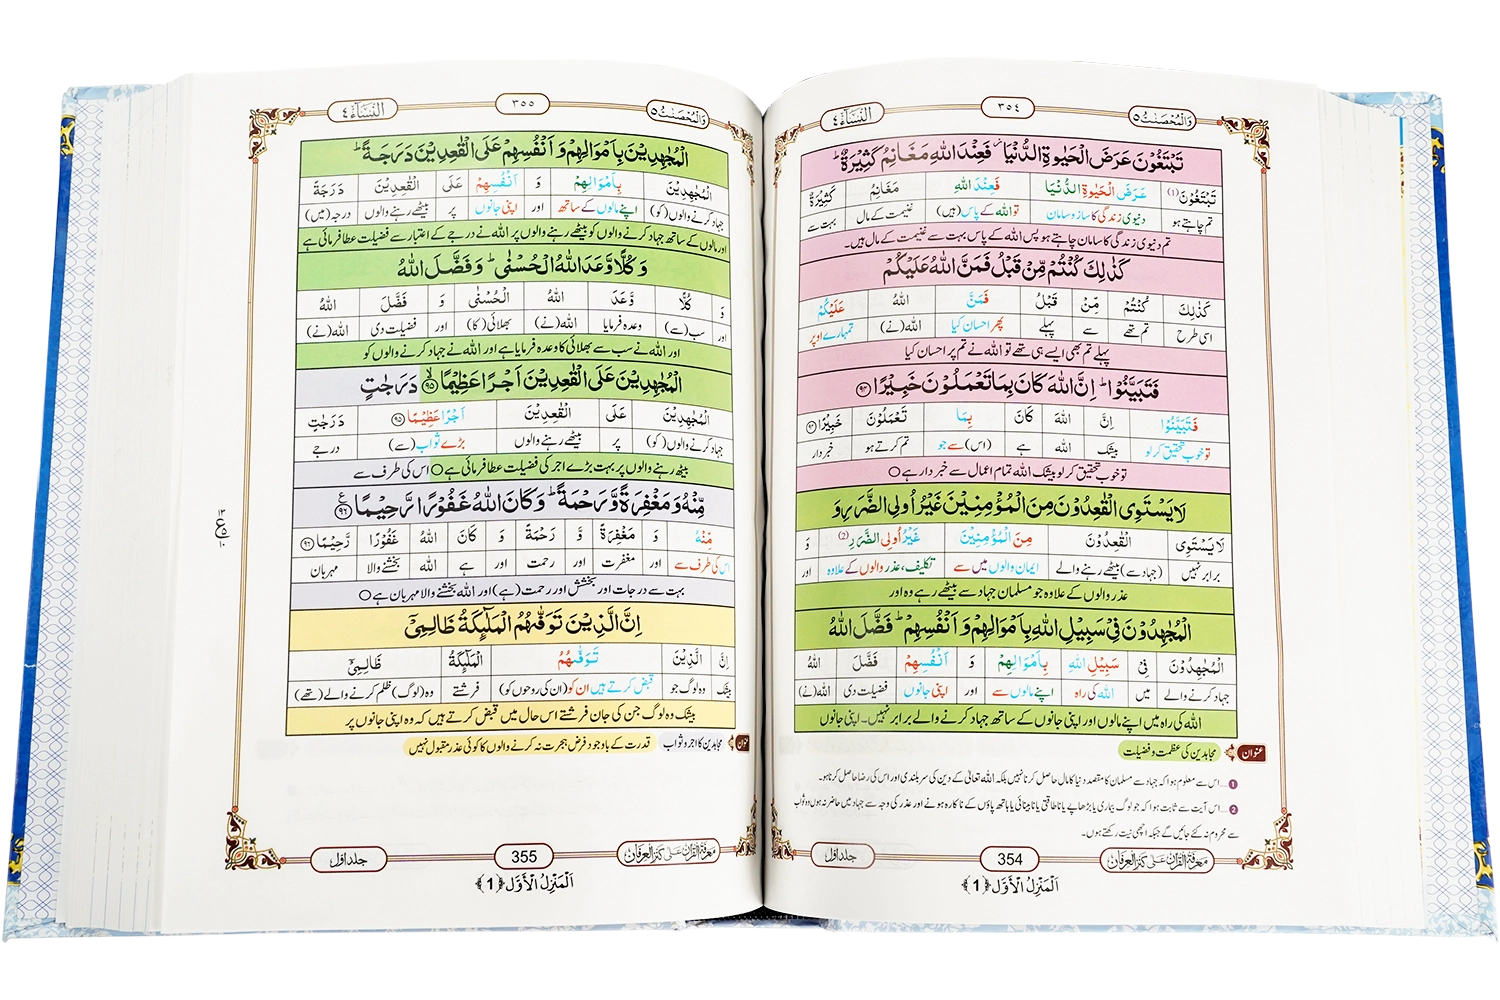 وَالْمُحْصَنٰتُ ٥
٣٥٤
اَلنِّسَآء ٤
تَبْتَغُوْنَ عَرَضَ الْحَيٰوةِ الدُّنْيَا ۫ فَعِنْدَ اللّٰهِ مَغَانِمُ كَثِيْرَةٌ ؕ
تَبْتَغُوْنَ (1) عَرَضَ الْحَيٰوةِ الدُّنْيَا فَعِنْدَ اللّٰهِ مَغَانِمُ كَثِيْرَةٌ
تم چاہتے ہو دنیوی زندگی کا ساز و سامان تو اللہ کے پاس (ہیں) غنیمت کے مال بہت سے
تم دنیوی زندگی کا سامان چاہتے ہو پس اللہ کے پاس بہت سے غنیمت کے مال ہیں۔
كَذٰلِكَ كُنْتُمْ مِّنْ قَبْلُ فَمَنَّ اللّٰهُ عَلَيْكُمْ
كَذٰلِكَ كُنْتُمْ مِّنْ قَبْلُ فَمَنَّ اللّٰهُ عَلَيْكُمْ
اسی طرح تم تھے سے پہلے پھر احسان کیا اللہ (نے) تمہارے اوپر
پہلے تم بھی ایسے ہی تھے تو اللہ نے تم پر احسان کیا
فَتَبَيَّنُوْا ؕ اِنَّ اللّٰهَ كَانَ بِمَا تَعْمَلُوْنَ خَبِيْرًا ﴿٩٤﴾
فَتَبَيَّنُوْا اِنَّ اللّٰهَ كَانَ بِمَا تَعْمَلُوْنَ خَبِيْرًا ﴿٩٤﴾
تو خوب تحقیق کر لو بیشک اللہ ہے (اس) سے جو تم کرتے ہو خبردار
تو خوب تحقیق کر لو بیشک اللہ تمام اعمال سے خبردار ہے ○
لَا يَسْتَوِى الْقٰعِدُوْنَ مِنَ الْمُؤْمِنِيْنَ غَيْرُ اُولِى الضَّرَرِ وَ
لَا يَسْتَوِى الْقٰعِدُوْنَ مِنَ الْمُؤْمِنِيْنَ غَيْرُ اُولِى الضَّرَرِ (2) وَ
برابر نہیں (جہاد سے) بیٹھے رہنے والے ایمان والوں میں سے تکلیف، عذر والوں کے علاوہ اور
عذر والوں کے علاوہ جو مسلمان جہاد سے بیٹھے رہے وہ اور
الْمُجٰهِدُوْنَ فِيْ سَبِيْلِ اللّٰهِ بِاَمْوَالِهِمْ وَ اَنْفُسِهِمْ ؕ فَضَّلَ اللّٰهُ
الْمُجٰهِدُوْنَ فِيْ سَبِيْلِ اللّٰهِ بِاَمْوَالِهِمْ وَ اَنْفُسِهِمْ فَضَّلَ اللّٰهُ
جہاد کرنے والے میں اللہ کی راہ اپنے مالوں سے اور اپنی جانوں فضیلت دی اللہ (نے)
اللہ کی راہ میں اپنے مالوں اور اپنی جانوں کے ساتھ جہاد کرنے والے برابر نہیں۔ اپنی جانوں
عنوان مجاہدین کی عظمت و فضیلت
1 ...اس سے معلوم ہوا کہ جہاد سے مسلمان کا مقصد دنیا کا مال حاصل کرنا نہیں بلکہ اللہ تعالیٰ کے دین کی سربلندی اور اس کی رضا حاصل کرنا ہو۔
2 ...اس آیت سے ثابت ہوا کہ جو لوگ بیماری یا بڑھاپے یا ناطاقتی یا نابینائی یا ہاتھ پاؤں کے ناکارہ ہونے اور عذر کی وجہ سے جہاد میں حاضر نہ ہوں وہ ثواب
سے محروم نہ کئے جائیں گے جبکہ اچھی نیت رکھتے ہوں۔
معرفۃ القرآن علی کنز العرفان
354
جلد اول
اَلْمَنْزِلُ الْاَوَّل ﴿1﴾
وَالْمُحْصَنٰتُ ٥
٣٥٥
اَلنِّسَآء ٤
الْمُجٰهِدِيْنَ بِاَمْوَالِهِمْ وَ اَنْفُسِهِمْ عَلَى الْقٰعِدِيْنَ دَرَجَةً ؕ
الْمُجٰهِدِيْنَ بِاَمْوَالِهِمْ وَ اَنْفُسِهِمْ عَلَى الْقٰعِدِيْنَ دَرَجَةً
جہاد کرنے والوں (کو) اپنے مالوں کے ساتھ اور اپنی جانوں پر بیٹھے رہنے والوں درجہ (میں)
اور مالوں کے ساتھ جہاد کرنے والوں کو بیٹھے رہنے والوں پر اللہ نے درجے کے اعتبار سے فضیلت عطا فرمائی ہے
وَ كُلًّا وَّعَدَ اللّٰهُ الْحُسْنٰى ؕ وَ فَضَّلَ اللّٰهُ
وَ كُلًّا وَّعَدَ اللّٰهُ الْحُسْنٰى وَ فَضَّلَ اللّٰهُ
اور سب (سے) وعدہ فرمایا اللہ (نے) بھلائی (کا) اور فضیلت دی اللہ (نے)
اور اللہ نے سب سے بھلائی کا وعدہ فرمایا ہے اور اللہ نے جہاد کرنے والوں کو
الْمُجٰهِدِيْنَ عَلَى الْقٰعِدِيْنَ اَجْرًا عَظِيْمًا ﴿٩٥﴾ دَرَجٰتٍ
الْمُجٰهِدِيْنَ عَلَى الْقٰعِدِيْنَ اَجْرًا عَظِيْمًا ﴿٩٥﴾ دَرَجٰتٍ
جہاد کرنے والوں (کو) پر بیٹھے رہنے والوں بڑے ثواب (سے) درجے
بیٹھ رہنے والوں پر بہت بڑے اجر کی فضیلت عطا فرمائی ہے ○ اس کی طرف سے
مِّنْهُ وَ مَغْفِرَةً وَّ رَحْمَةً ؕ وَ كَانَ اللّٰهُ غَفُوْرًا رَّحِيْمًا ﴿٩٦﴾ ع
مِّنْهُ وَ مَغْفِرَةً وَّ رَحْمَةً وَ كَانَ اللّٰهُ غَفُوْرًا رَّحِيْمًا ﴿٩٦﴾
اس کی طرف سے اور مغفرت اور رحمت اور ہے اللہ بخشنے والا مہربان
بہت سے درجات اور بخشش اور رحمت (ہے) اور اللہ بخشنے والا مہربان ہے ○
اِنَّ الَّذِيْنَ تَوَفّٰىهُمُ الْمَلٰٓئِكَةُ ظَالِمِيْٓ
اِنَّ الَّذِيْنَ تَوَفّٰىهُمُ الْمَلٰٓئِكَةُ ظَالِمِيْٓ
بیشک وہ لوگ جو قبض کرتے ہیں ان کو (ان کی روحوں کو) فرشتے وہ (لوگ) ظلم کرنے والے (تھے)
بیشک وہ لوگ جن کی جان فرشتے اس حال میں قبض کرتے ہیں کہ وہ اپنی جانوں پر
عنوان مجاہدین کا اجر و ثواب قدرت کے باوجود فرض ہجرت نہ کرنے والوں کا کوئی عذر مقبول نہیں
معرفۃ القرآن علی کنز العرفان
355
جلد اول
اَلْمَنْزِلُ الْاَوَّل ﴿1﴾
١٣
ع
١٠